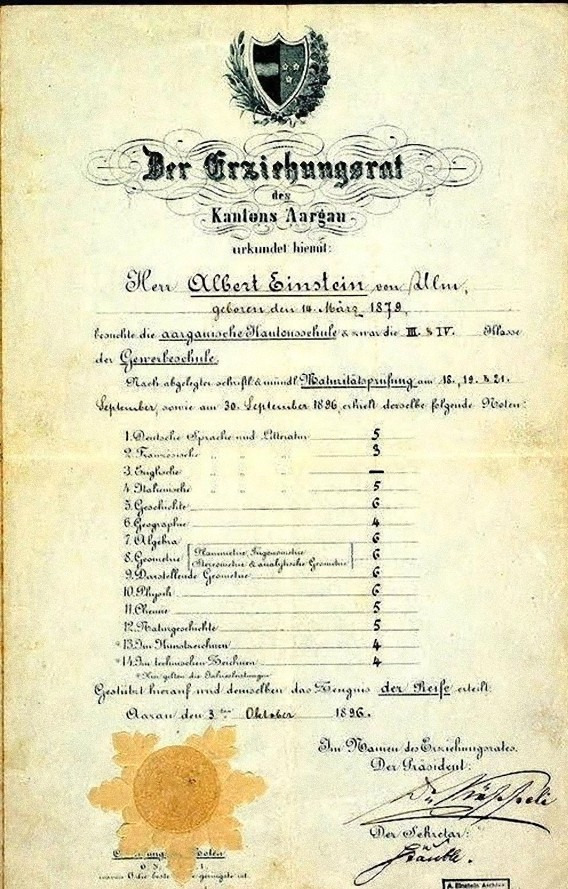 Der Erziehungsrat
des
Kantons Aargau
urkundet hiemit:
Herr Albert Einstein von Ulm,
geboren den 14. März 1879,
besuchte die aargauische Kantonsschule & zwar die III. & IV. Klasse
der Gewerbeschule.
Nach abgelegter schriftl. & mündl. Maturitätsprüfung am 18., 19. & 21.
September, sowie am 30. September 1896, erhielt derselbe folgende Noten:
1. Deutsche Sprache und Litteratur 5
2. Französische " " " 3
3. Englische " " " —
4. Italienische " " " 5
5. Geschichte 6
6. Geographie 4
7. Algebra 6
8. Geometrie [Planimetrie, Trigonometrie Stereometrie & analytische Geometrie] 6
9. Darstellende Geometrie 6
10. Physik 6
11. Chemie 5
12. Naturgeschichte 5
*13. Im Kunstzeichnen 4
*14. Im technischen Zeichnen 4
*Hier gelten die Jahresleistungen
Gestützt hierauf wird demselben das Zeugnis der Reife erteilt.
Aarau den 3ten Oktober 1896.
Im Namen des Erziehungsrates.
Der Präsident:
Der Sekretär:
Stäuble.
Noten
6 die beste geringste ist.
A. Einstein Archive